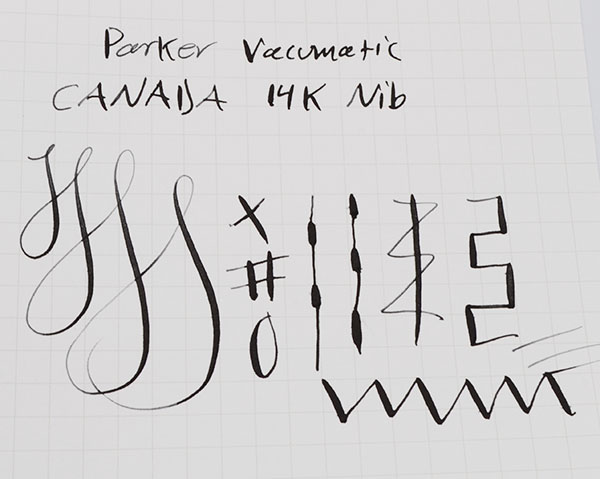 Parker Vacumatic
CANADA 14K Nib
x
#
0